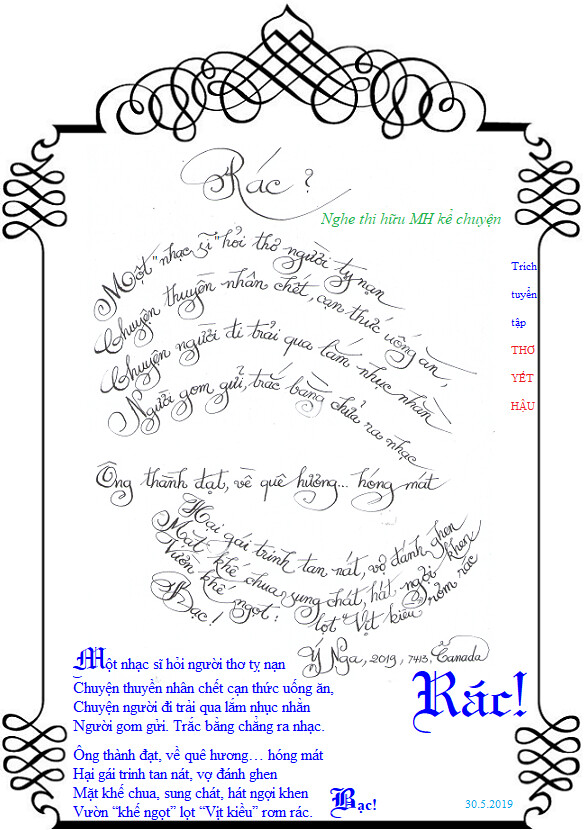 Rác ?
Nghe thi hữu MH kể chuyện
Một "nhạc sĩ" hỏi thơ người tỵ nạn
Chuyện thuyền nhân chết, cạn thức uống ăn,
Chuyện người đi trải qua lắm nhục nhằn
Người gom gửi, trắc bằng chửa ra nhạc
Ông thành đạt, về quê hương... hóng mát
Hại gái trinh tan nát, vợ đánh ghen
Mặt khế chua, sung chát, hát ngợi khen
Vườn khế ngọt: lọt "Vịt kiều" rởm rác
Bạc!
Ý Nga, 2019, 7413, Canada
Trích
tuyển
tập
THƠ
YẾT
HẬU
Một nhạc sĩ hỏi người thơ tỵ nạn
Chuyện thuyền nhân chết cạn thức uống ăn,
Chuyện người đi trải qua lắm nhục nhằn
Người gom gửi. Trắc bằng chẳng ra nhạc.
Rác!
Ông thành đạt, về quê hương… hóng mát
Hại gái trinh tan nát, vợ đánh ghen
Mặt khế chua, sung chát, hát ngợi khen
Vườn “khế ngọt” lọt “Vịt kiều” rơm rác.
Bạc!
30.5.2019